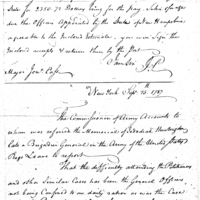 Sale for 2350.72 Dollars being for the pay
due the Officers Appointed by the State of New Hampshire
agreeable to the Inclosed Schedule, you will Sign the
Inclosed receipts & return them by the Post
I am Sir J.P.
Major Jonª Cass
New York Sepr. 24th 1787
The Commissioner of Army Accounts to
whom was referred the Memorial of Jedediah Huntington
late a Brigadier General in the Army of the United States
Begs Leave to report
That the difficulty attending the Petitioners
and other Similar Cases has been the General Officers
not being Confined to any duty as was the Case